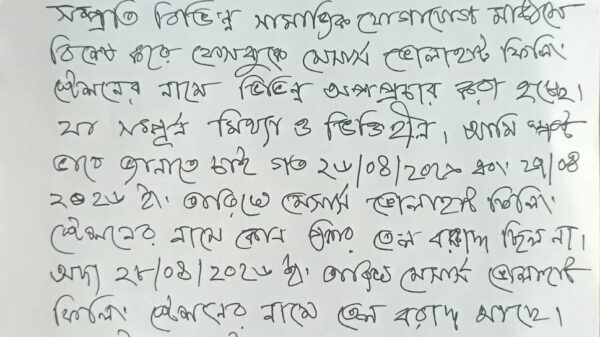 সম্প্রতি বিভিন্ন সামাজিক যোগাযোগ মাধ্যমে
বিশেষ করে ফেসবুকে মেসার্স ভোলাহাট ফিলিং
স্টেশনের নামে বিভিন্ন অপপ্রচার করা হচ্ছে।
যা সম্পূর্ন মিথ্যা ও ভিত্তিহীন। আমি স্পষ্ট
ভাবে জানাতে চাই গত ২৬/০৪/২০২৬ এবং ২৭/০৪
২০২৬ ইং তারিখে মেসার্স ভোলাহাট ফিলিং
স্টেশনের নামে কোন প্রকার তেল বরাদ্দ ছিল না।
অদ্য ২৮/০৪/২০২৬ ইং তারিখে মেসার্স ভোলাহাট
ফিলিং স্টেশনের নামে তেল বরাদ্দ আছে।